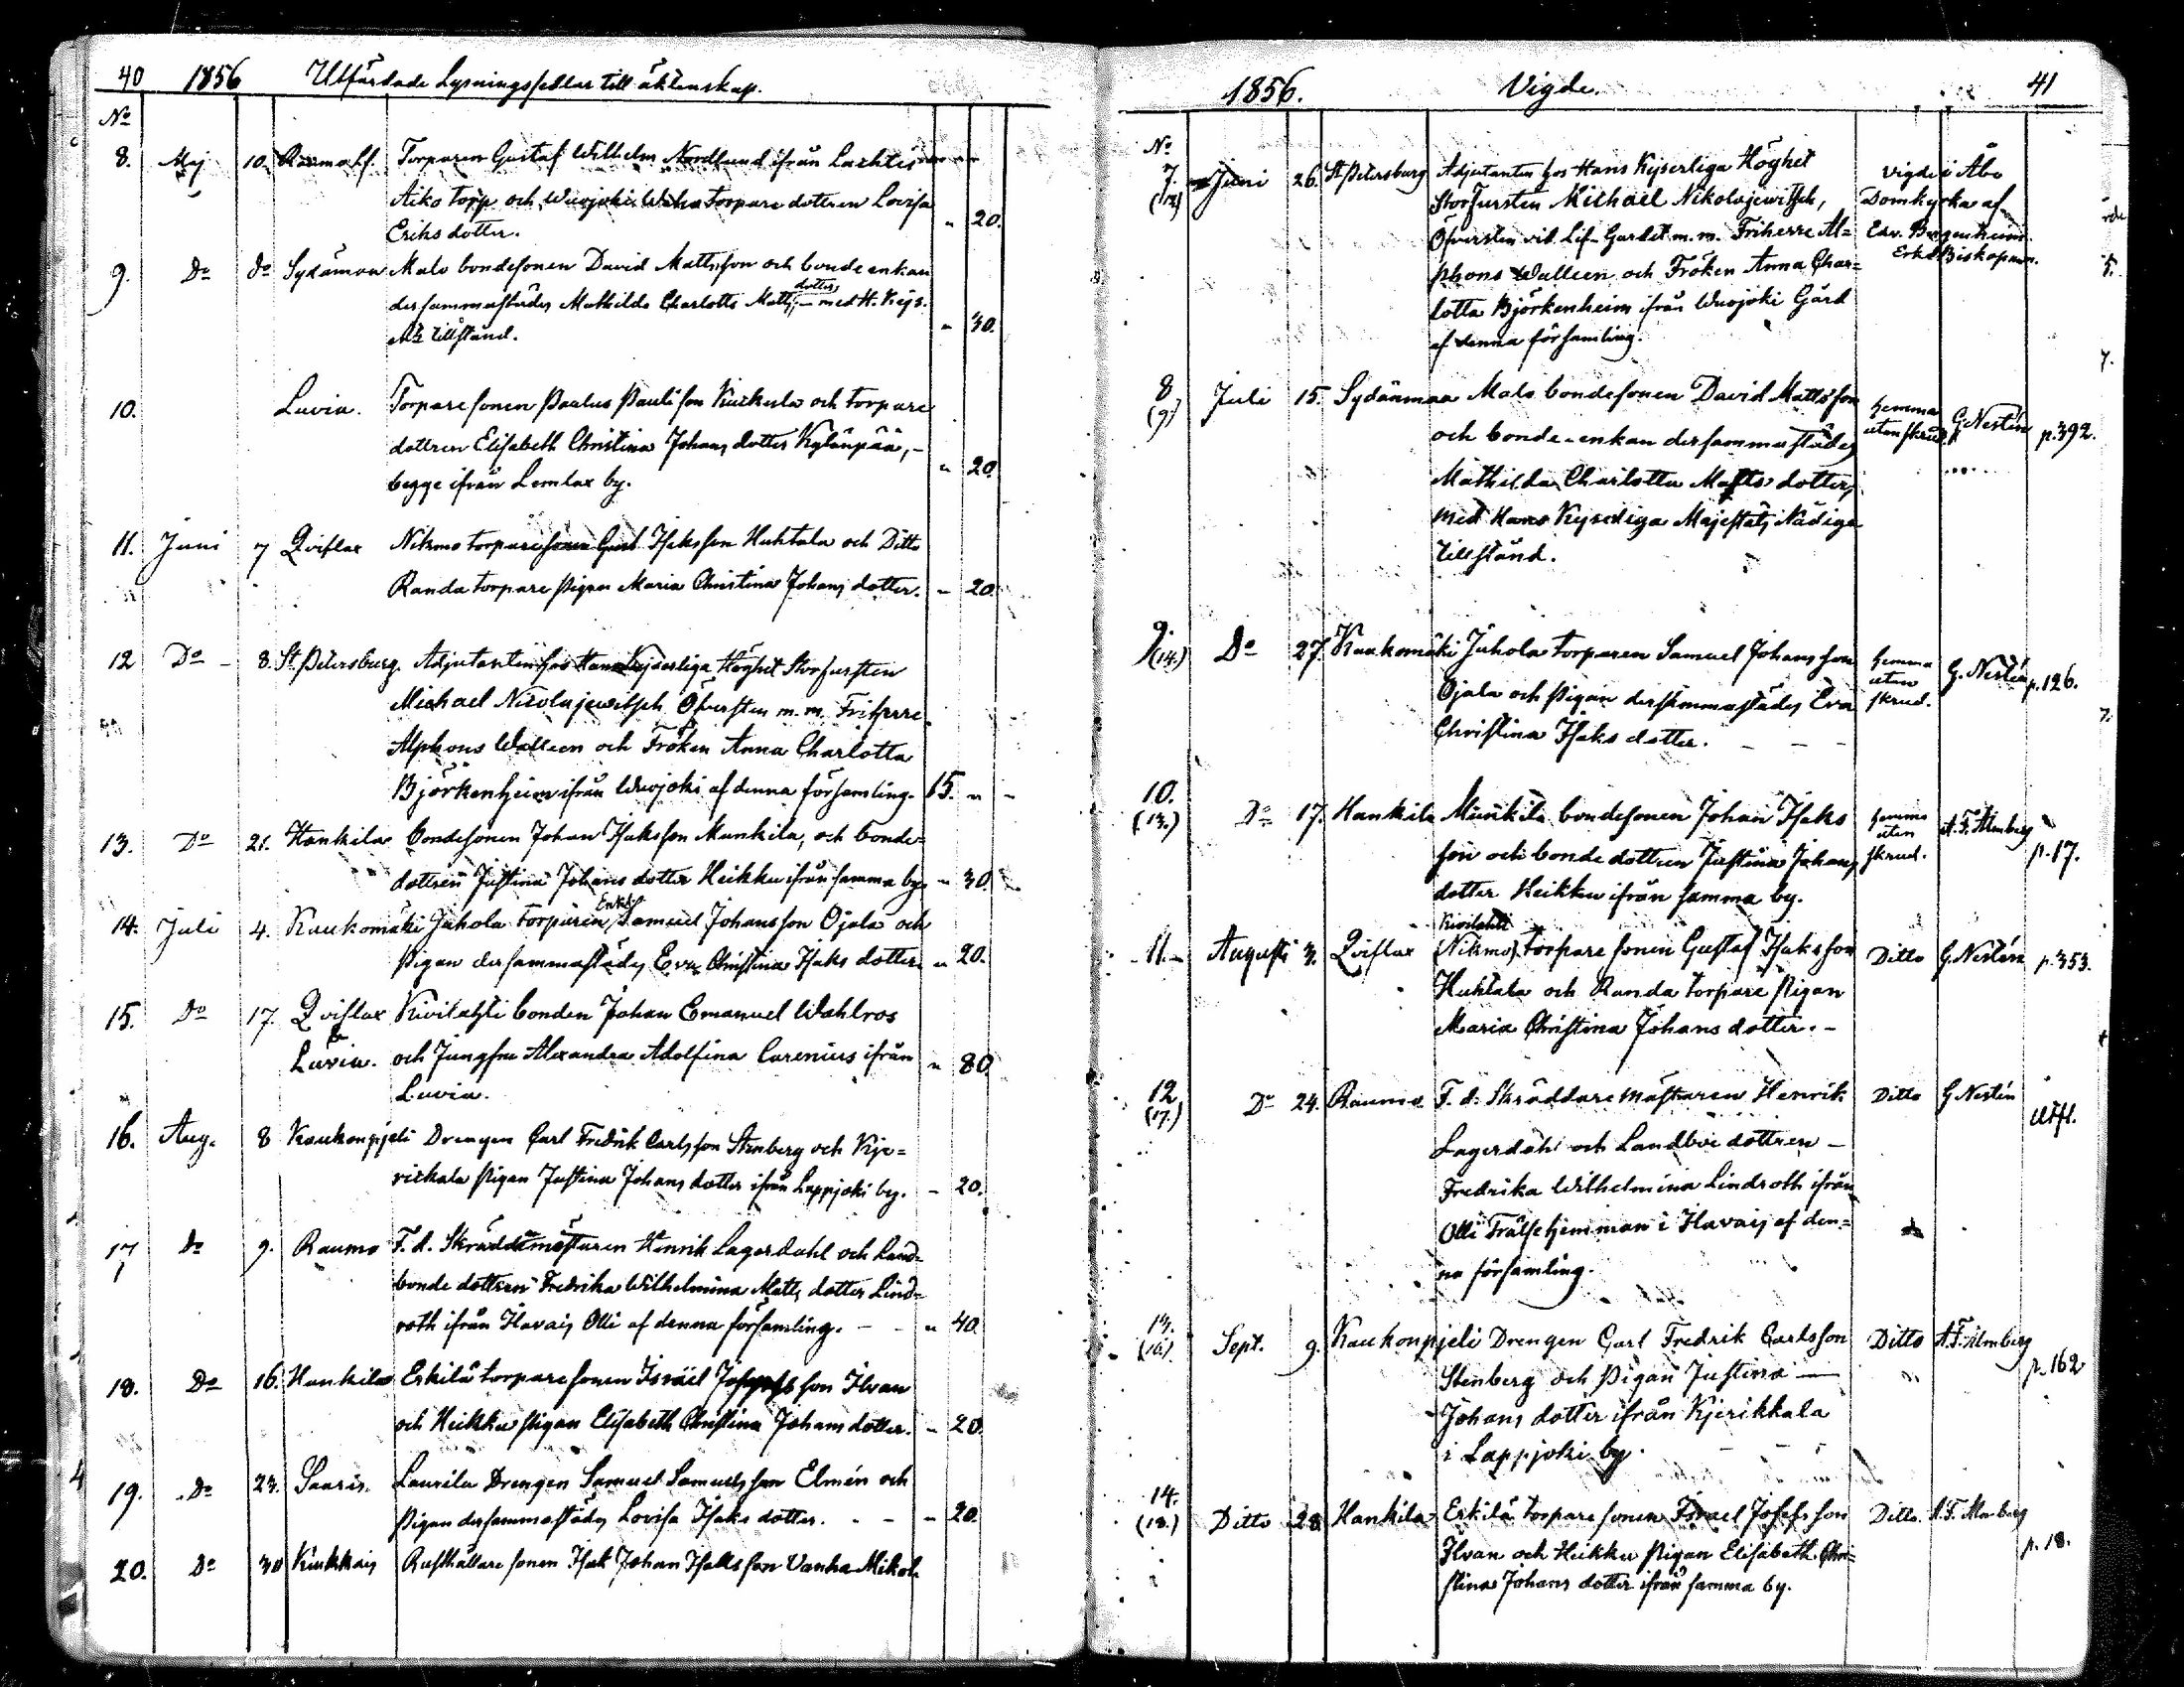 40 1856 Utfärdade Lysningssedlar till äktenskap.
No
8. Maj 10. Raumo lf. Torparen Gustaf Wilhelm Nordlund ifrån Lachtis
Aiko torp och Wuojoki torpare dottren Lovisa
Eriks dotter. " 20.
9. Do do Sydänmaa Malo bondesonen David Mattsson och bonde enkan
dersammastädes Mathilda Charlotta Matts dotter, – med H. Kejs.
Mts tillstånd. " 30.
10. Luvia. Torpare sonen Paulus Paulisson Kuckula och torpare
dottren Elisabeth Christina Johans dotter Kylänpää, –
begge ifrån Lemlax by. " 20.
11. Juni 7 Qviflax Nikmo torpare sonen Gust. Isaksson Huhtala och Ditto
Randa torpare pigan Maria Christina Johans dotter. – 20.
12 Do – 8. St. Petersburg. Adjutanten hos Hans Kejserliga Höghet Storfursten
Michael Nicolajewitsch Öfversten m. m. Friherre
Alphons Walleen och Fröken Anna Charlotta
Björkenheim ifrån Wuojoki af denna församling. 15. " –
13. Do 21. Hankila bondesonen Johan Isaksson Munkila, och bonde=
dottren Justina Johans dotter Heikku ifrån samma by. " 30.
14. Juli 4. Kaukomäki Juhola torparen Enkl. Samuel Johansson Ojala och
Pigan dersammastädes Eva Christina Isaks dotter. " 20.
15. Do 17. Qviflax Kivitahti bonden Johan Emanuel Wahlros
& Luvia. och Jungfru Alexandra Adolfina Carenius ifrån
Luvia. " 80.
16. Aug. 8 Kaukonpjeli Drengen Carl Fredrik Carlsson Stenberg och Kje=
rickala pigan Justina Johans dotter ifrån Lappjoki by. – 20.
17 Do 9. Raumo F. d. Skräddaremästaren Henrik Lagerdahl och Land=
bonde dottren Fredrika Wilhelmina Matts dotter Lind=
roth ifrån Havais Olli af denna församling. – – " 40.
18. Do 16. Hankila Erkilä torpare sonen Israel Josephsson Ilvan
och Heikku pigan Elisabeth Christina Johans dotter. – 20.
19. Do 23. Saaris. Laurila Drengen Samuel Samuelsson Elmén och
Pigan dersammastädes Lovisa Isaks dotter. – – " 20.
20. Do 30 Kiukkais Rusthållare sonen Isak Johan Isaksson Vanha Mikola
1856. Vigde. 41
No
7. (12) Juni 26. St. Petersburg Adjutanten hos Hans Kejserliga Höghet vigde i Åbo
Storfursten Michael Nikolajewitsch, Domkyrka af
Öfversten vid Lif-Gardet m. m. Friherre Al= Edv. Bergenheim
phons Walleen och Fröken Anna Char= Erke Biskopen.
lotta Björkenheim ifrån Wuojoki Gård
af denna församling.
8 (9.) Juli 15. Sydänmaa Malo bondesonen David Mattsson hemma utan skrud. G. Nestén p. 392.
och bonde-enkan dersammastädes
Mathilda Charlotta Matts dotter,
med Hans Kejserliga Majestäts Nådiga
tillstånd.
9. (14.) Do 27. Kaukomäki Juhola torparen Samuel Johansson hemma utan skrud. G. Nestén p. 126.
Ojala och pigan dersammastädes Eva
Christina Isaks dotter. – – –
10. (13.) Do 17. Hankila Munkila bondesonen Johan Isaks hemma utan skrud. A. F. Almberg p. 17.
son och bonde dottren Justina Johans
dotter Heikku ifrån samma by.
Kivitahti
11. Augusti 3. Qviflax (Nikmo) torpare sonen Gustaf Isaksson Ditto G. Nestén p. 353.
Huhtala och Randa torpare pigan
Maria Christina Johans dotter. –
12 (17.) Do 24. Raumo F. d. Skräddaremästaren Henrik Ditto G. Nestén Utfl.
Lagerdahl och Landboe dottren –
Fredrika Wilhelmina Lindroth ifrån
Olli Frälsehemman i Havais af den=
na församling.
13. (16.) Sept. 9. Kaukonpjeli Drengen Carl Fredrik Carlsson Ditto A. F. Almberg p. 162
Stenberg och Pigan Justina –
Johans dotter ifrån Kjerikkala
i Lappjoki by.
14. (18.) Ditto 28. Hankila Erkilä torpare sonen Israel Josefsson Ditto. A. F. Almberg p. 18.
Ilvan och Heikku pigan Elisabeth Chri=
stina Johans dotter ifrån samma by.